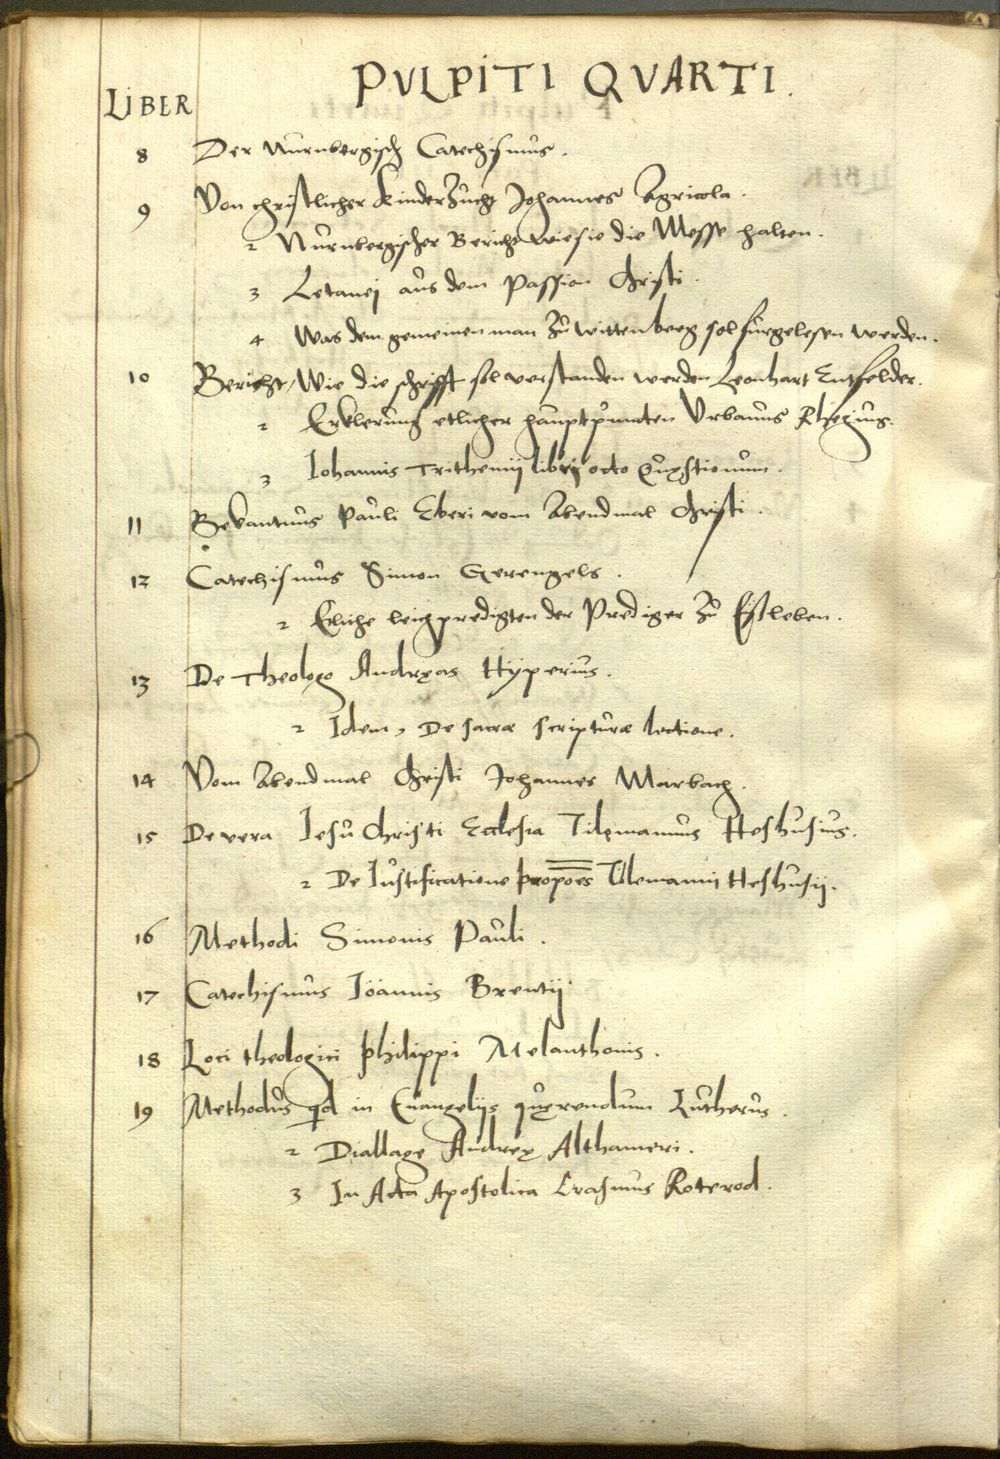 PVLPITI QVARTI.
LIBER
8 Der Nurnbergisch Catechismus.
9 Von christlicher Kinderzucht Johannes Agricola.
2 Nurnbergischer Bericht wie sie die Messe halten.
3 Letanej aus dem Passion Christi.
4 Was dem gemeinen man zu Wittenberg sol fürgelesen werden.
10 Bericht, Wie die schrifft sol verstanden werden Leonhart Entfelder.
2 Erklerung etlicher hauptpuncten Vrbanus Rhegius.
3 Iohannis Trithemij libri octo Quęstionum.
11 Bekantnus Pauli Eberi vom Abendmal Christi.
12 Catechismus Simon Gerengels.
2 Etliche leichpredigten der Prediger zu Eisleben.
13 De Theologo Andręas Hyperius.
2 Idem, De sacræ scripturæ lectione.
14 Vom Abendmal Christi Johannes Marbach.
15 De vera Iesu Christi Ecclesia Tilęmannus Heshusius.
2 De Iustificatione propoēs Tilemanni Heshusij.
16 Methodi Simonis Pauli.
17 Catechismus Ioannis Brentij.
18 Loci theologici philippi Melanthonis.
19 Methodus qd in Euangelijs quęrendum Lutherus.
2 Diallage Andreę Althameri.
3 In Acta Apostolica Erasmus Roterod.